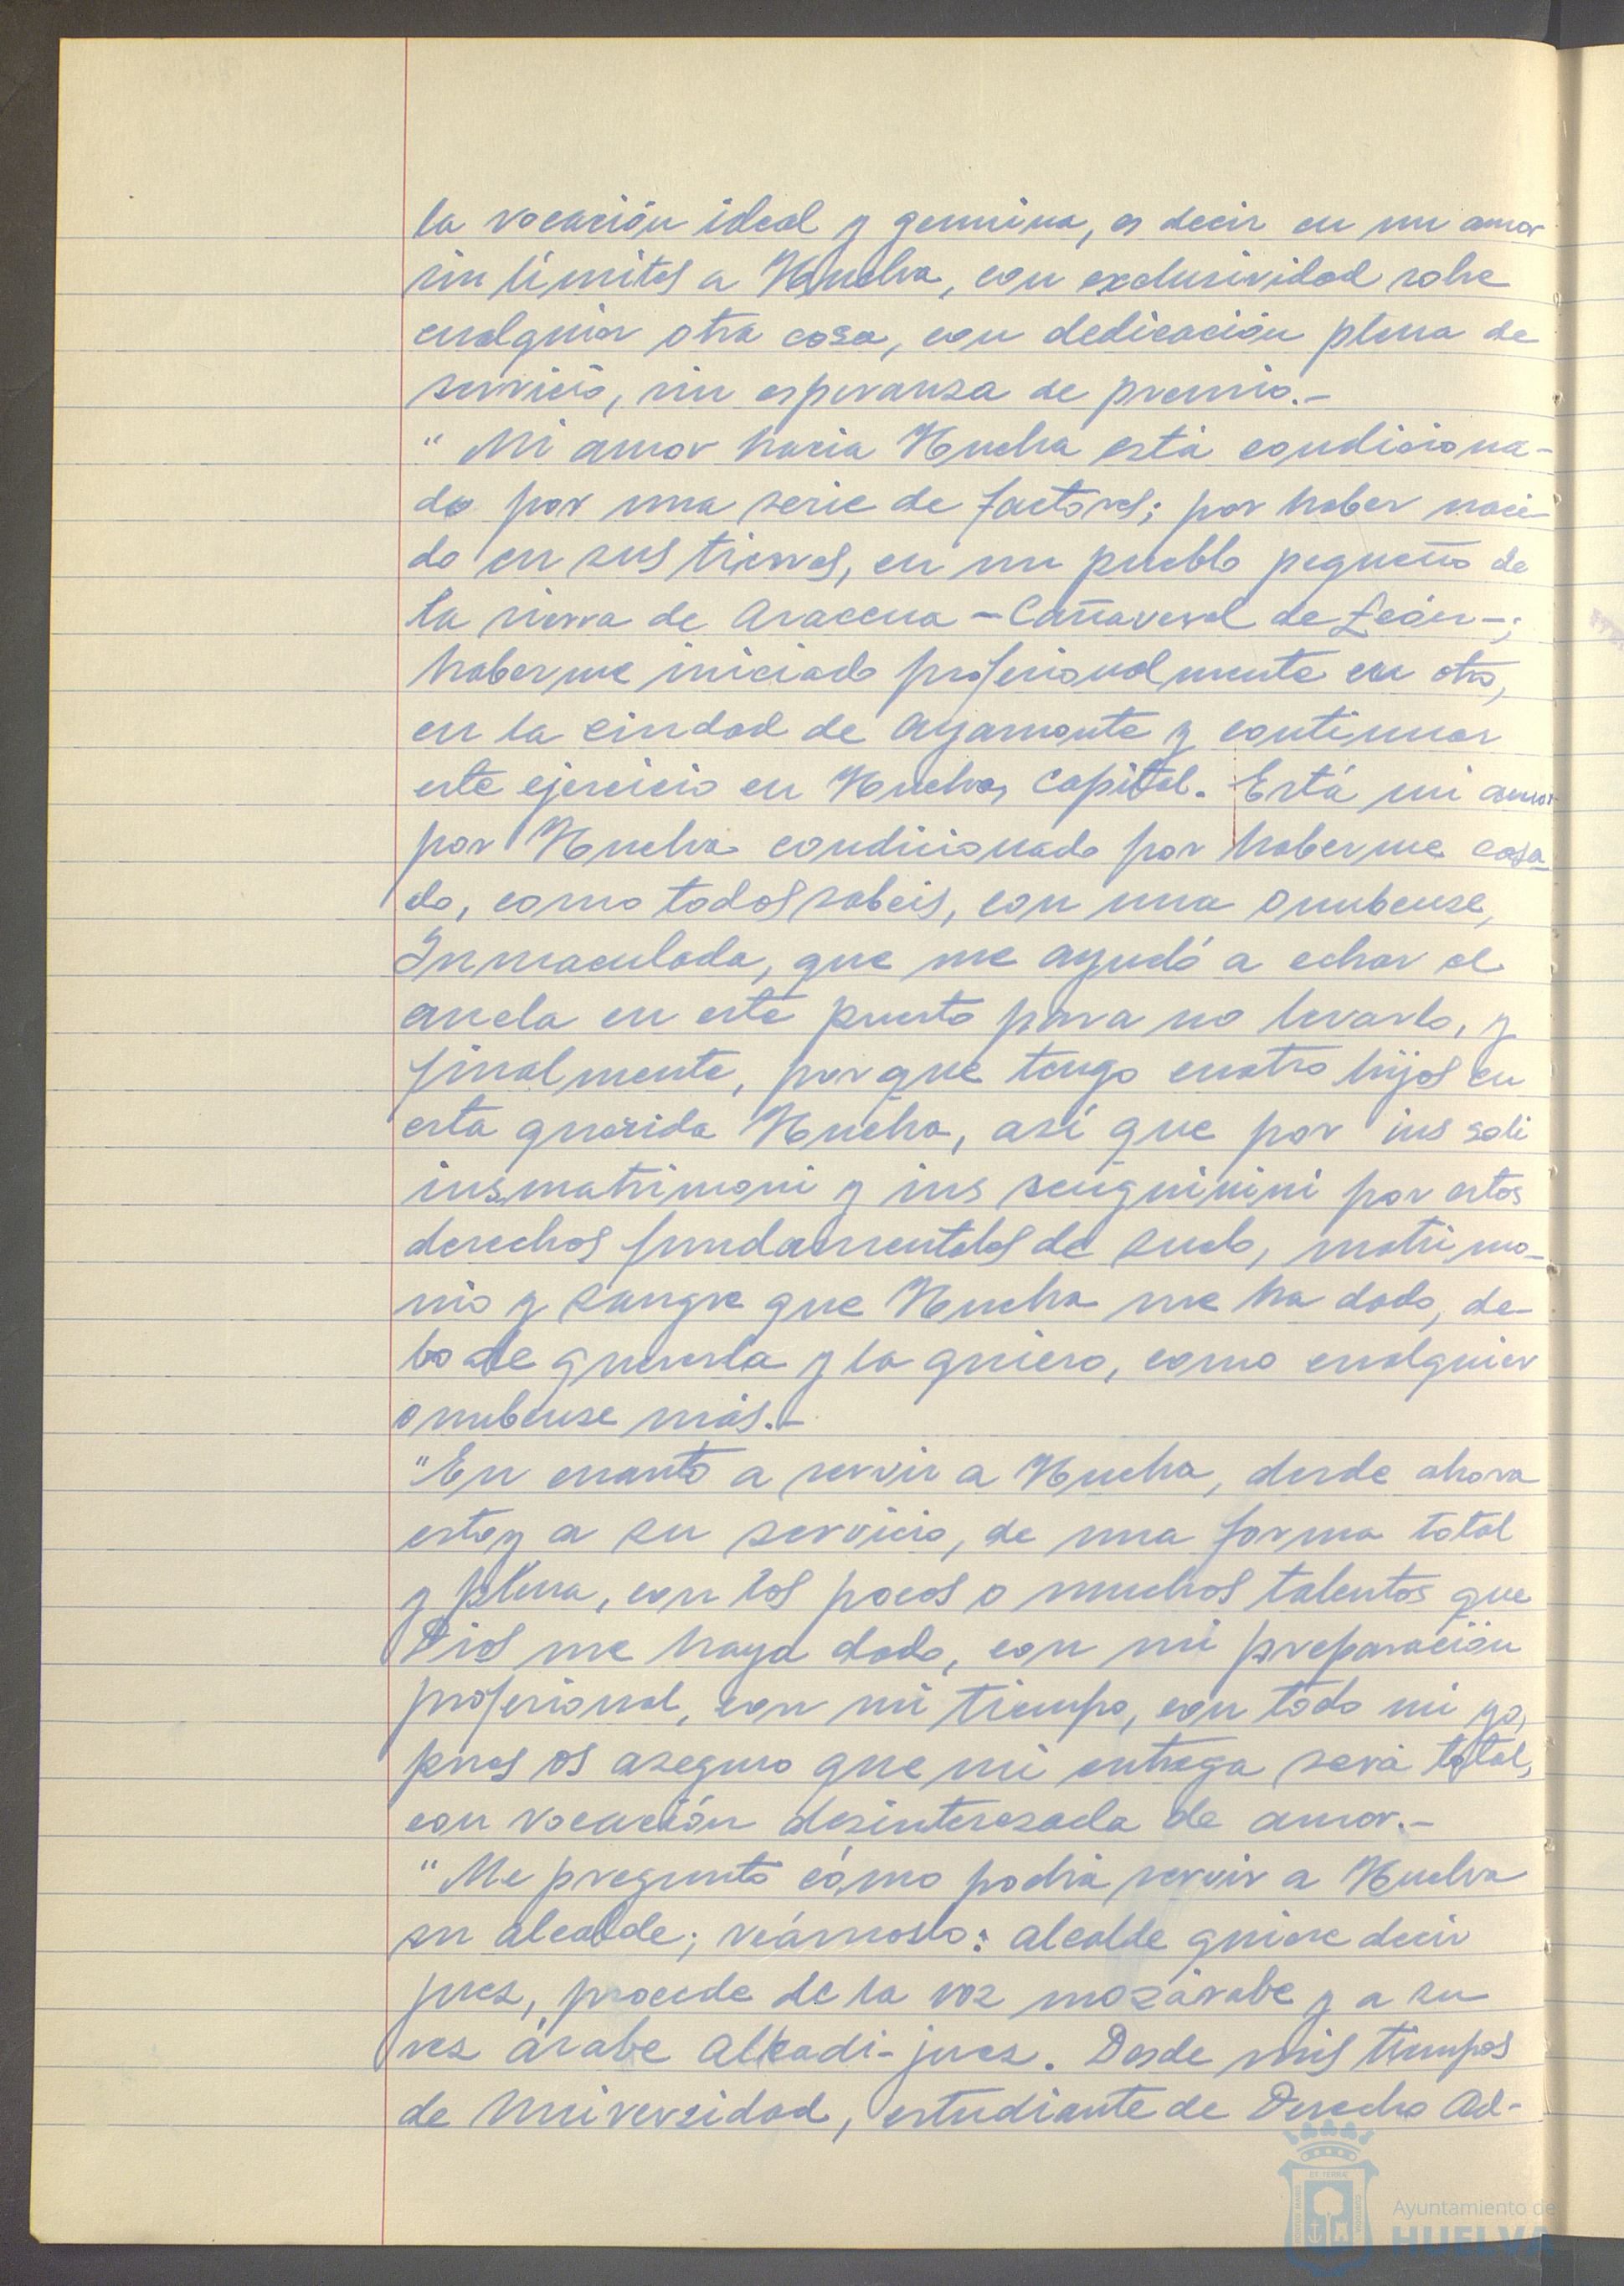 la vocación ideal y genuina, es decir en un amor
sin límites a Huelva, con exclusividad sobre
cualquier otra cosa, con dedicación plena de
servicio, sin esperanza de premio.-
" Mi amor hacia Huelva está condiciona-
do por una serie de factores; por haber naci-
do en sus tierras, en un pueblo pequeño de
la sierra de Aracena - Cañaveral de León -;
haberme iniciado profesionalmente en otro,
en la ciudad de Ayamonte y continuar
este ejercicio en Huelva, Capital. Está mi amor
por Huelva condicionado por haberme casa-
do, como todos sabeis, con una onubense,
Inmaculada, que me ayudó a echar el
ancla en este puerto para no levarlo, y
finalmente, porque tengo cuatro hijos en
esta querida Huelva, así que por ius soli
ius matrimoni y ius senguinini por estos
derechos fundamentales de suelo, matrimo-
nio y sangre que Huelva me ha dado, de-
bo de quererla y la quiero, como cualquier
onubense más.-
"En cuanto a servir a Huelva, desde ahora
estoy a su servicio, de una forma total
y plena, con los pocos o muchos talentos que
Dios me haya dado, con mi preparación
profesional, con mi tiempo, con todo mi yo,
pues os aseguro que mi entrega será total,
con vocación desinteresada de amor.-
"Me pregunto cómo podrá servir a Huelva
su alcalde; veámoslo: alcalde quiere decir
juez, procede de la voz mozárabe y a su
vez árabe alkadi-juez. Desde mis tiempos
de Universidad, estudiante de Derecho Ad-
Ayuntamiento de
HUELVA